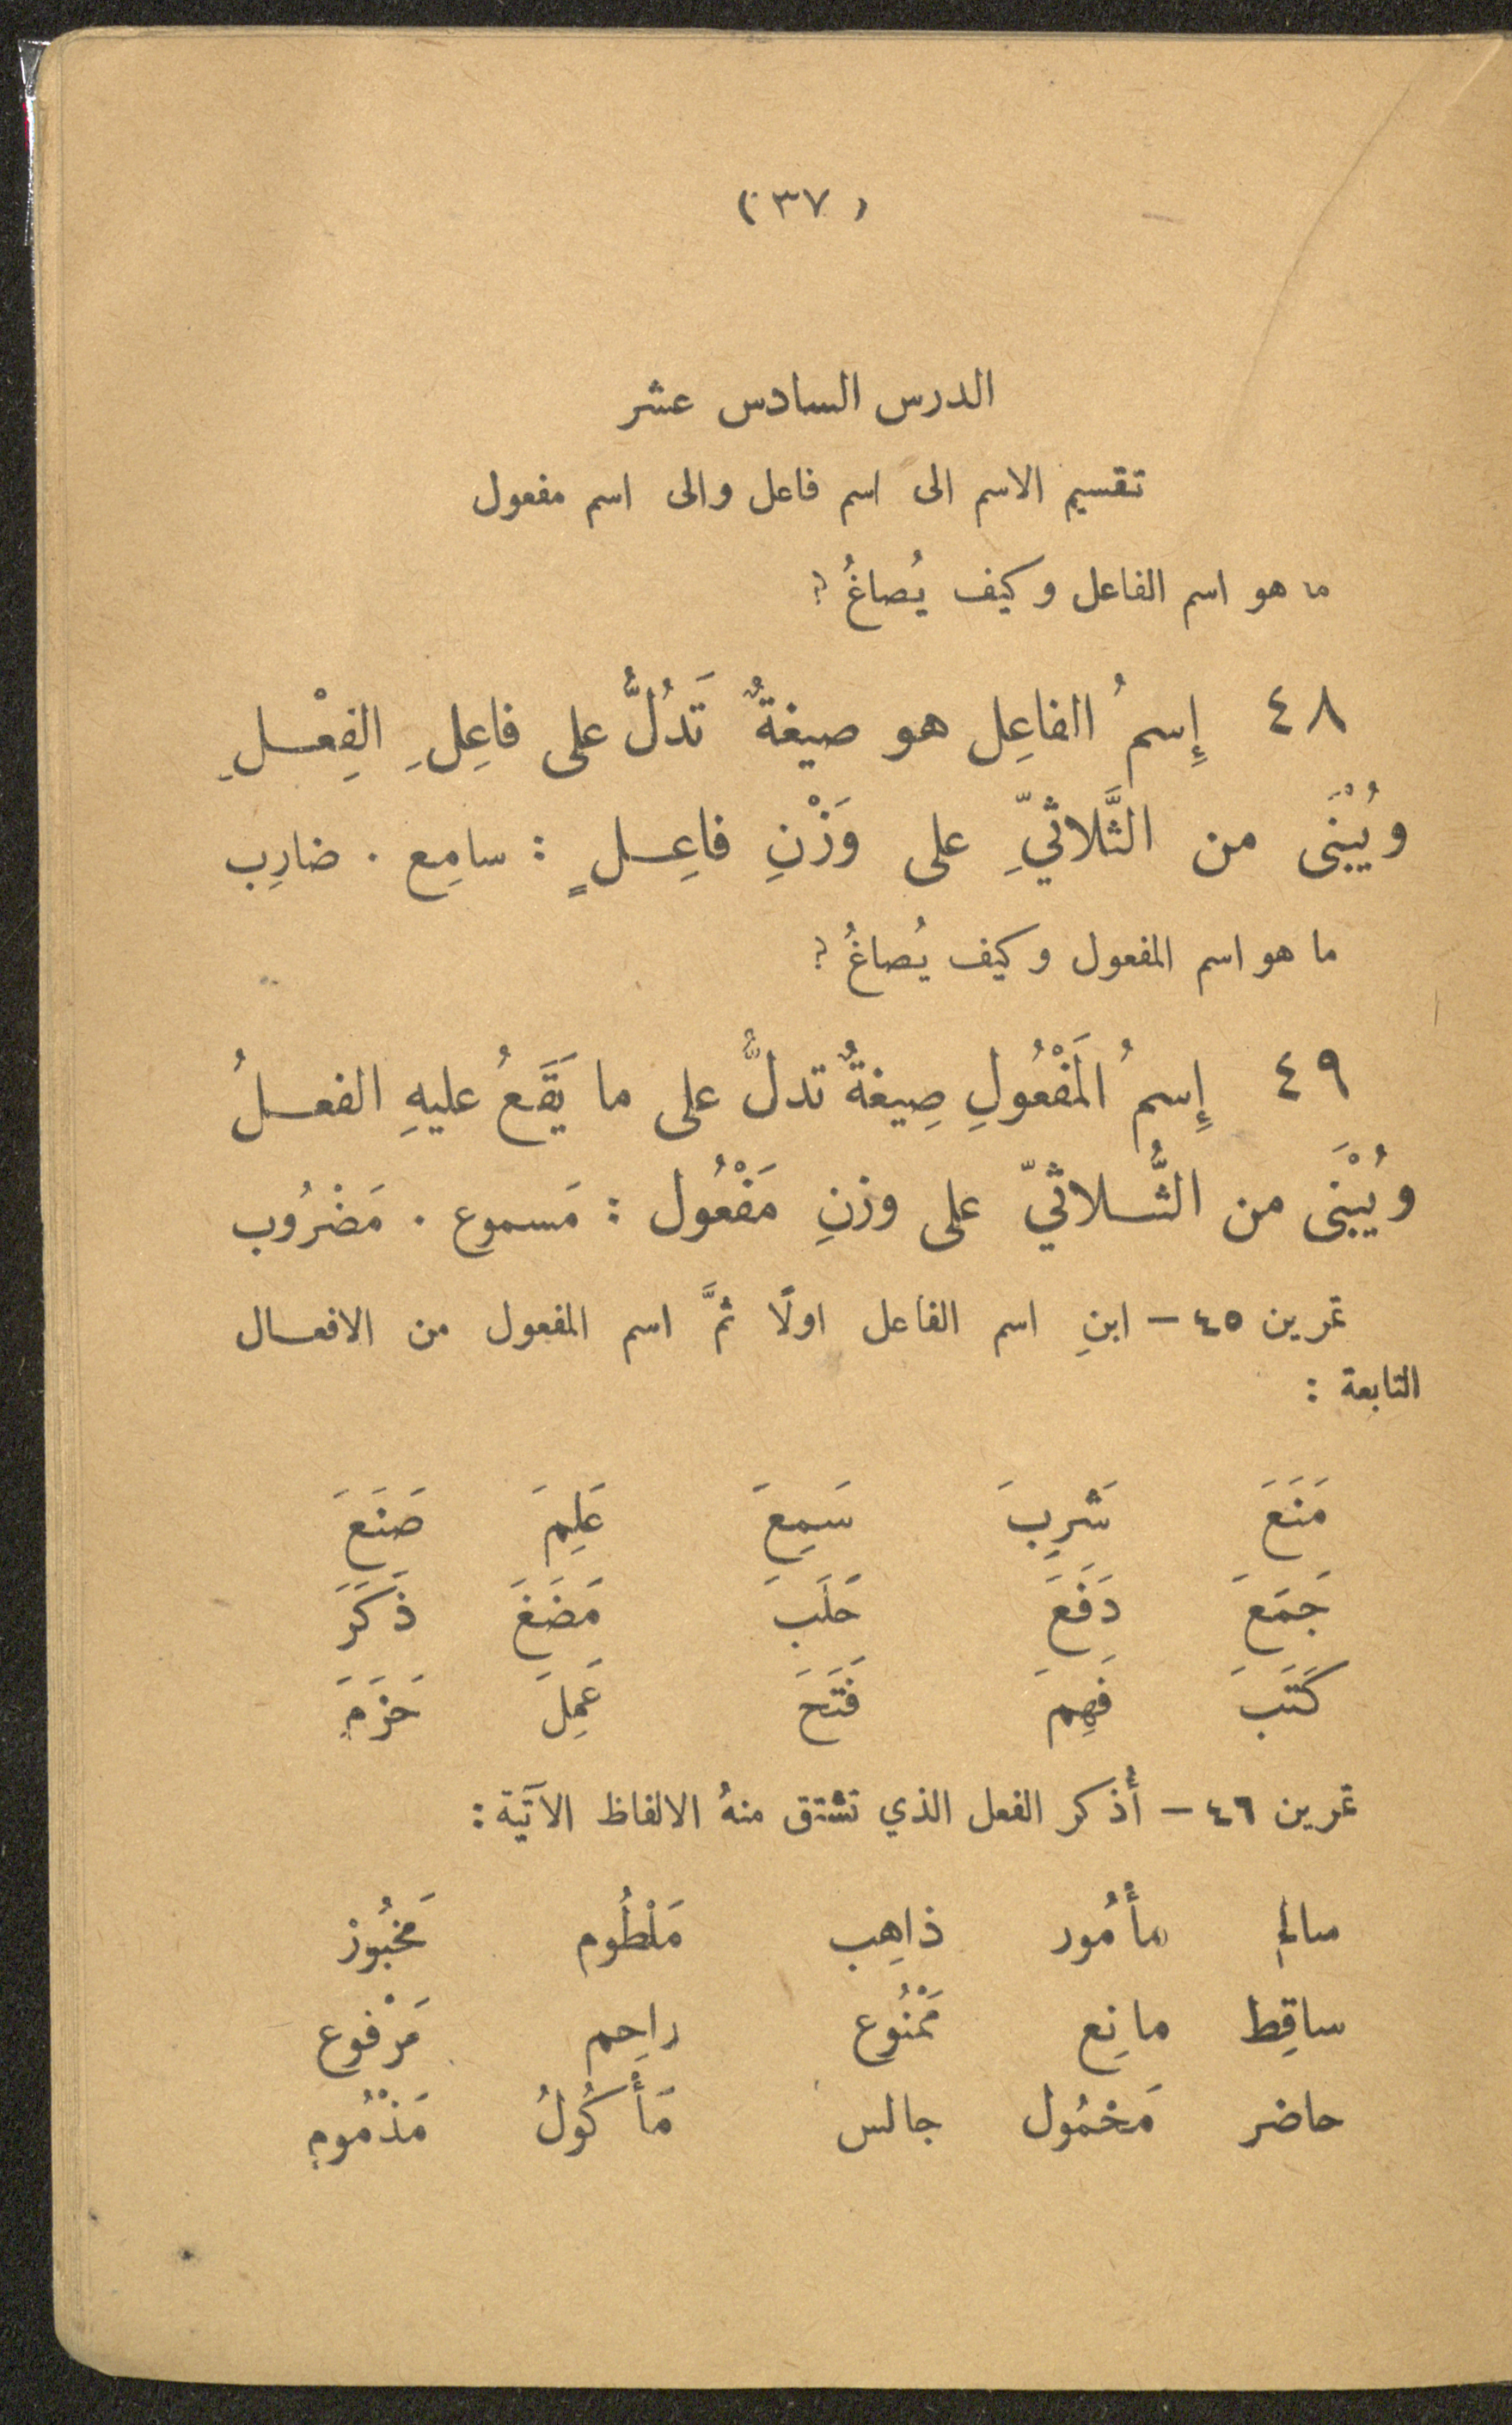 (٣٧)
الدرس السادس عشر
تقسيم الاسم الى اسم فاعل والى اسم مفعول
ما هو اسم الفاعل وكيف يُصاغُ ؟
٤٨ إِسمُ الفاعِل هو صيغةٌ تَدُلُّ على فاعِلِ الفِعْلِ
ويُبْنَى من الثَّلاثيِّ على وَزْنِ فاعِلٍ : سامِع . ضارِب
ما هو اسم المفعول وكيف يُصاغُ ؟
٤٩ إِسمُ المَفْعُولِ صِيغةٌ تدلُّ على ما يَقَعُ عليهِ الفعلُ
ويُبْنَى من الثُّلاثيّ على وزنِ مَفْعُول : مَسموع . مَضْرُوب
تمرين ٤٥ – ابنِ اسم الفاعل اولًا ثمَّ اسم المفعول من الافعال
التابعة :
مَنَعَ شَرِبَ سَمِعَ عَلِمَ صَنَعَ
جَمَعَ دَفَعَ حَلَبَ مَضَغَ ذَكَرَ
كَتَبَ فَهِمَ فَتَحَ عَمِلَ حَزَمَ
تمرين ٤٦ – أُذكر الفعل الذي تشتق منهُ الالفاظ الآتية :
سالم مأمُور ذاهِب مَلْطُوم مَخبُوز
ساقِط مانِع مَمْنُوع راحِم مَرْفوع
حاضر مَحمُول جالس مَأْكُولُ مَذْمُوم